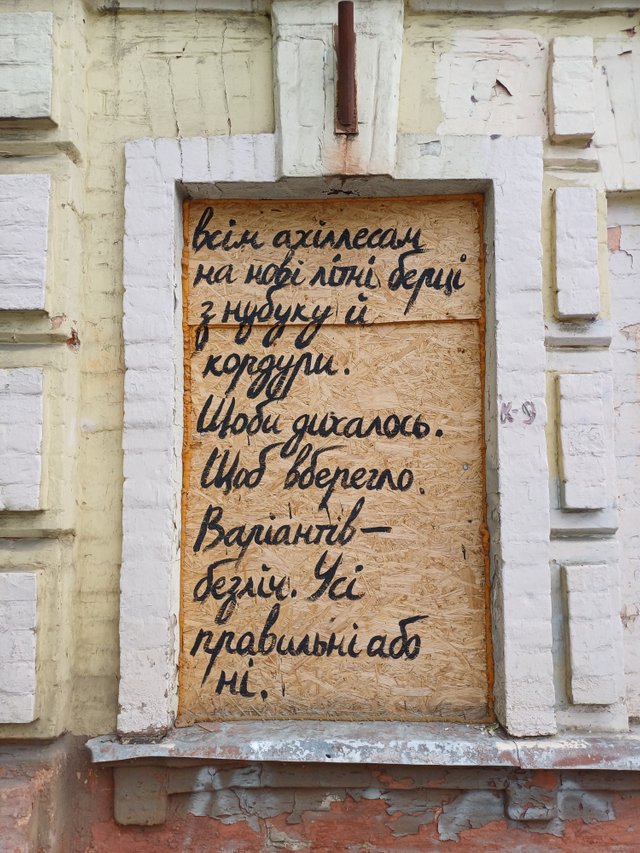 всім ахіллесам
на нові літні берці
з нубуку й
кордури.
Щоби дихалось.
Щоб вберегло.
Варіантів —
безліч. Усі
правильні або
ні.
К-9